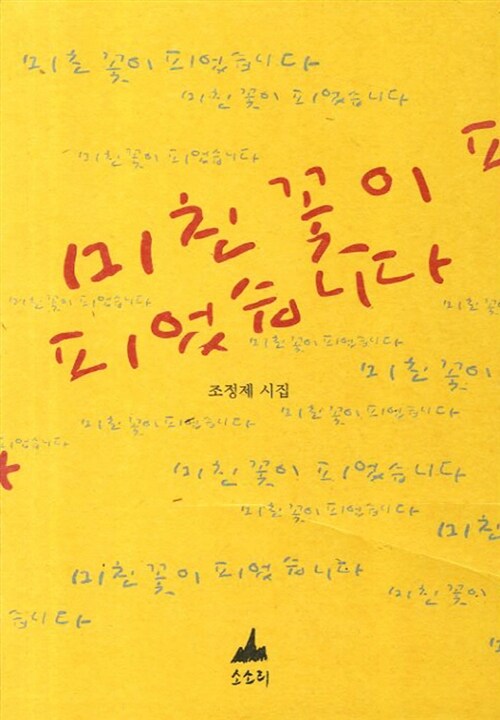 미친 꽃이 피었습니다
미친 꽃이 피었습니다
미친 꽃이 피었습니다
미친 꽃이 피
미친 꽃이 피었습니다
피었습니다
미친 꽃이
미친 꽃이 피었습니다
미친 꽃이
조정제 시집
미친 꽃이 피었습니다
미친 꽃이 피었습니다
피었습니다
미친 꽃이 피었습니다
미친 꽃이 피었습니다
미친
미친 꽃이 피었습니다
미친 꽃이
습니다
소소리